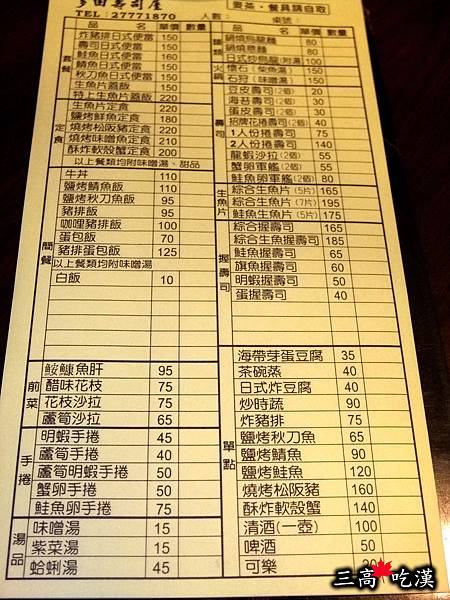 多田壽司屋
TEL:27771870
麥茶·餐具請自取
人數:
桌號:
品名 單價 數量
套餐
炸豬排日式便當 150
壽司日式便當 150
鮭魚日式便當 160
鯖魚日式便當 150
秋刀魚日式便當 150
生魚片蓋飯 150
特上生魚片蓋飯 220
定食
生魚片定食 220
鹽烤鮮魚定食 180
燒烤松阪豬定食 220
燒烤味噌魚定食 210
酥炸軟殼蟹定食 200
以上餐類均附味噌湯、甜品
簡餐
牛丼 110
鹽烤鯖魚飯 110
鹽烤秋刀魚飯 95
豬排飯 95
咖哩豬排飯 100
蛋包飯 70
豬排蛋包飯 125
以上餐類均附味噌湯
白飯 10
前菜
鮟鱇魚肝 95
醋味花枝 75
花枝沙拉 75
蘆筍沙拉 65
手捲
明蝦手捲 45
蘆筍手捲 40
蘆筍明蝦手捲 50
蟹卵手捲 50
鮭魚卵手捲 75
湯品
味噌湯 15
紫菜湯 15
蛤蜊湯 45
品名 單價 數量
鍋燒烏龍麵 80
鍋燒意麵 80
日式炒烏龍(附湯) 100
火鍋
懷石(柴魚湯) 150
石狩(味噌湯) 150
壽司
豆皮壽司(2個) 20
海苔壽司(2個) 30
蛋皮壽司(2個) 30
招牌花捲壽司(2個) 40
1人份捲壽司 75
2人份捲壽司 140
龍蝦沙拉(2個) 55
蟹卵軍艦(2個) 55
鮭魚卵軍艦(2個) 80
生魚片
綜合生魚片(5片) 165
綜合生魚片(7片) 195
鮭魚生魚片(5片) 175
握壽司
綜合握壽司 165
綜合生魚握壽司 185
鮭魚握壽司 65
旗魚握壽司 60
明蝦握壽司 50
蛋握壽司 40
單點
海帶芽蛋豆腐 35
茶碗蒸 40
日式炸豆腐 40
炒時蔬 90
炸豬排 75
鹽烤秋刀魚 65
鹽烤鯖魚 90
鹽烤鮭魚 120
燒烤松阪豬 160
酥炸軟殼蟹 140
清酒(一壺) 100
啤酒 50
可樂
三高吃漢